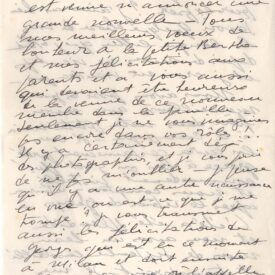 est venue m'annoncer une
grande nouvelle – Tous
mes meilleurs voeux de
bonheur à la petite Berthe
et mes félicitations aux
parents et à vous aussi
qui devraient être heureux
de la venue de ce nouveau
membre dans la famille –
Seulement je ne vous imagine
pas encore dans vos rôles !!
Il y a certainement déjà
des photographies, et je vous prie
de ne pas m'oublier – Je pense
qu'il y a une autre naissance
en vue ou est-ce que je me
trompe ? Je vous transmets
aussi les félicitations de
Georges, qui est en ce moment
à Milan et doit ensuite